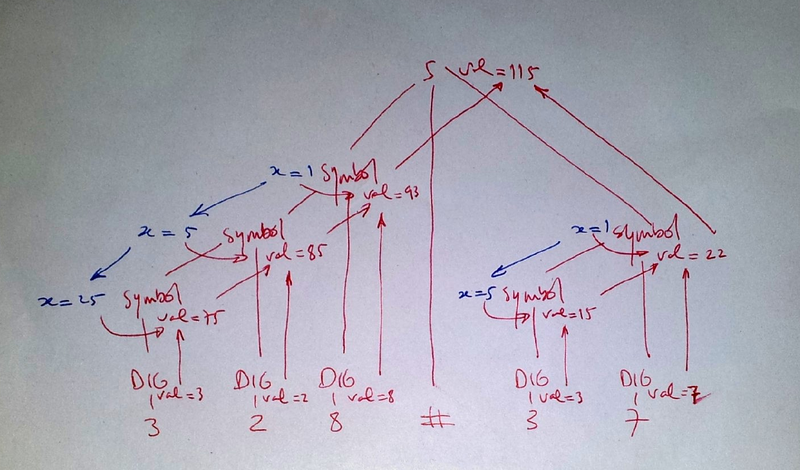 S val=115
x=1 Symbol
val=93
x=5 Symbol
val=85
x=1 Symbol
val=22
x=25 Symbol
val=75
x=5 Symbol
val=15
DIG DIG DIG DIG DIG
val=3 val=2 val=8 val=3 val=7
3 2 8 # 3 7